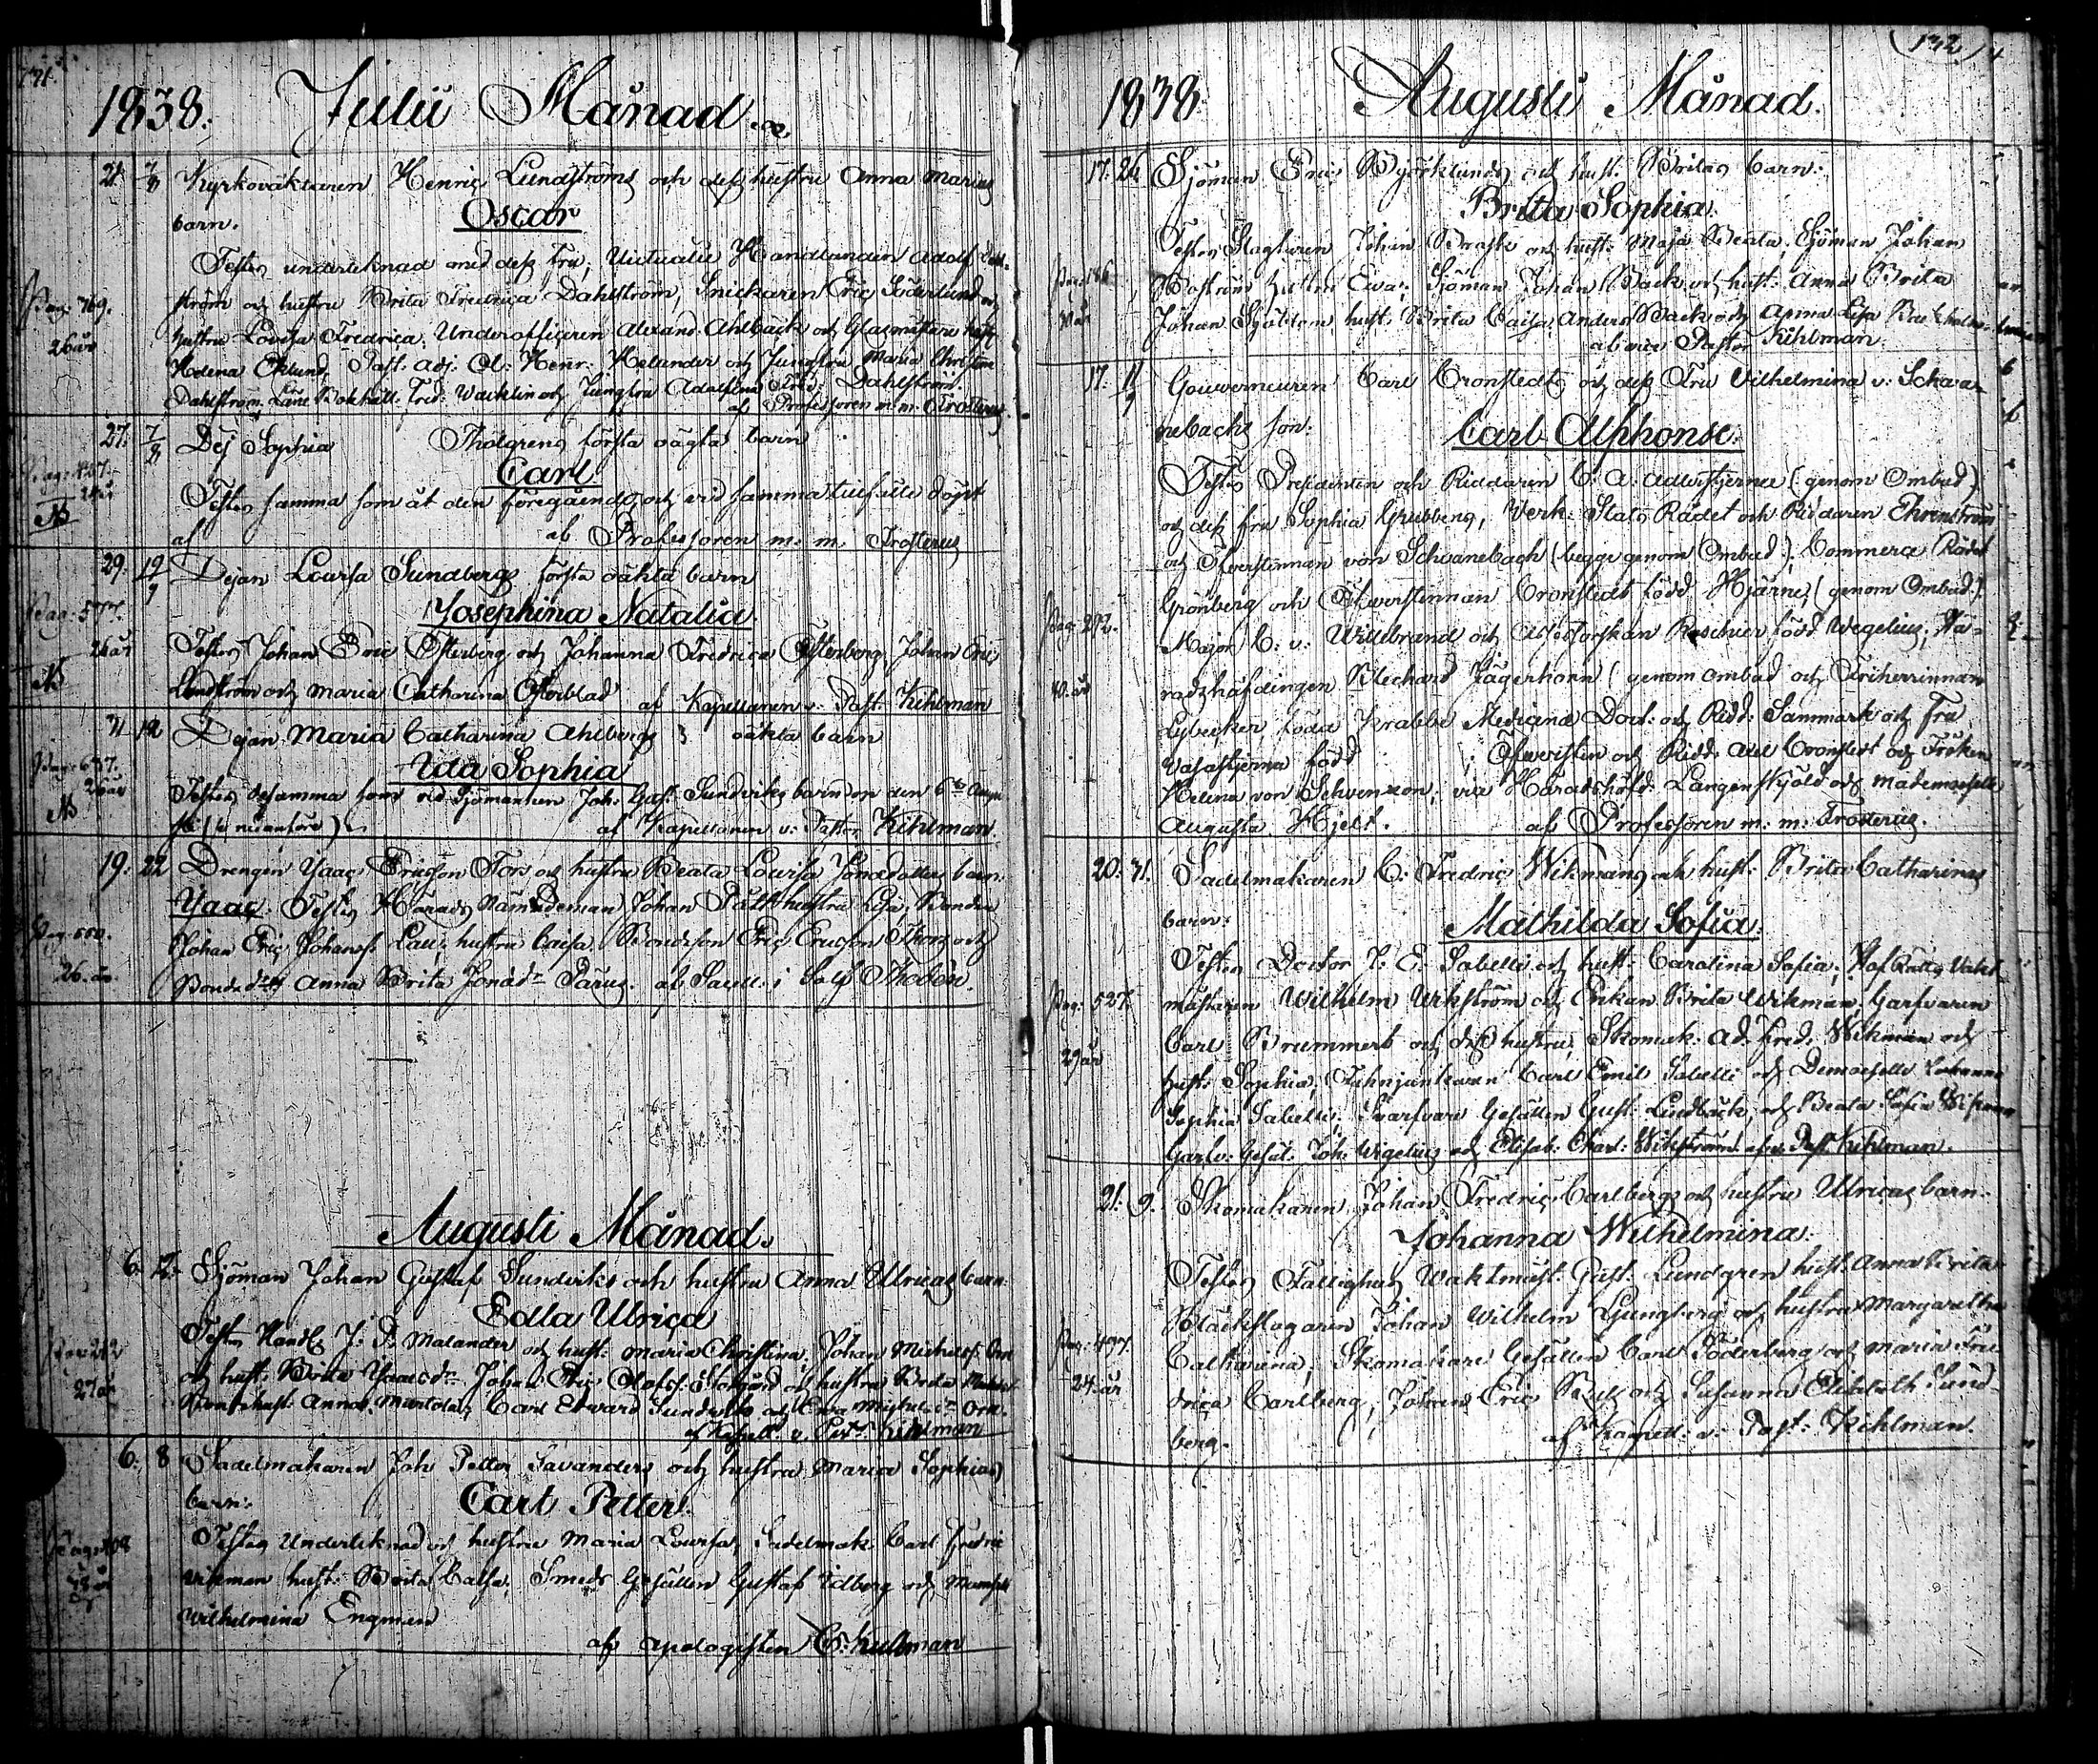 1838. Julii Månad
21. 7/8 Kyrkovaktaren Henric Lundströms och dess hustru Anna Marias
barn. Oscar
Testes underteknad med dess Fru, Victualie Handlanden Adolf
ström och hustru Brita Fredrica Dahlström, Snickaren Eric Söderlund och
Pag: 769.
hustru Lovisa Fredrica, Underofficeren Alexand. Ahlbäck och Glasmästare
26 år
Helena Eklund, Past. Adj. Henr. Helander och Jungfru Maria Christina
Dahlström, Bokhåll. Fred: Wacklin och Jungfru Adolfina Fred: Dahlström.
af Professoren m.m. Frosterus
27. 7/8 Dej Sophia Tholgrens första oägta barn
Carl
Testes samma som åt den föregående, och vid samma tillfälle döpt
af af Professoren m. m. Frosterus
29. 19/9 Dejan Lovisa Sundbergs första oäkta barn
Josephina Natalia
26 år
Testes Johan Eric Österberg och Johanna Fredrica Österberg, Johan Eric
Lundström och Maria Catharina Österblad af Kapellanen v. Past. Kihlman
31 12 Dejan Maria Catharina Ahlbergs oäkta barn
Ida Sophia
26 år
Testes desamma som vid Sjömannen Joh: Gust. Sundviks barn den 6te
af Kapellanen v: Pastor Kihlman.
19. 22 Drengen Isaac Ericson Fors och hustru Beata Lovisa Jonædotters barn.
Isaac. Testes Härads Nämndeman Johan Pått hustru Lisa, Bonden
Johan Eric Johanss. hustru Caisa, Bondeson Eric Ericson Thors och
26. år
Bondedtr Anna Brita Jonædr Pärus. af Sacell. i Solf Thodén.
Augusti Månad.
6. 12. Sjöman Johan Gustaf Sundviks och hustru Anna Ulricas barn.
Edla Ulrica
Testes J: P. Malander och hust: Maria Christina, Johan Michelss.
Pag: 212
och hust: Brita Isaacsdr Johan Eric Olofss. och hustru Brita
27 år
hust: Anna, Carl Edward Sundvik och Ewa Michelsdr Orn.
af Kapell. v. Past. Kihlman
6. 8 Sadelmakaren Joh Petter Savanders och hustru Maria Sophias
barn. Carl Petter.
Testes Underteknad och hustru Maria Lovisa, Sadelmak. Carl Fredric
Wikman hust: Brita Caisa, Smeds Gesällen Gustaf Idberg och
Wilhelmina Engman
af apologisten C. Kihlman
132
1838. Augusti Månad.
17. 26 Sjöman Eric Björklunds och hust. Britas barn.
Brita Sophia
Testes Slagtaren Johan Brask och hust: Maja Beata, Sjöman Johan
Boström hustru Ewa, Sjöman Johan Back och hust. Anna Brita
Johan Sjöblom hust: Brita Caisa, Anders Back och Anna Lisa
af vice Pastor Kihlman.
17. 11/9 Gouverneuren Carl Cronstedts och dess Fru Vilhelmina v: Schwa-
nebachs son. Carl Alphonse.
Testes Presidenten och Riddaren C: A: Adlerstjerna (genom Ombud)
och dess fru Sophia Grubberg, Verk: Stats Rådet och Riddaren Ehrenström
och Öfverstinnan von Schwanebach (begge genom Ombud), Commerce Rådet
Grönberg och Öfverstinnan Cronstedt född Hjärne, (genom Ombud.)
Pag: 292.
Major C: v: Willebrand och Assessorskan född Wegelius, Hä-
40. år
radshöfdingen Richard Jägerhorn (genom ombud och Friherrinnan
Lybecker, född Krabbe Medicinæ Doct: och Ridd: Sanmark och Fru
Vasastjerna född Öfversten och Ridd: Axel Cronstedt och Fröken
Helena von Schvenzon, vice Häradshöfd: Langenskjöld och Mademoiselle
Augusta Hjelt. af Professoren m: m: Frosterus.
20. 31. Sadelmakaren C: Fredric Wikmans och hust: Brita Catharinas
barn: Mathilda Sofia.
Testes Doctor J: E: Sabelli och hust: Carolina Sofia, Hof Rätts Vakt
Pag: 527.
mästaren Wilhelm Wikström och Enkan Brita Wikman, Garfvaren
29 år
Carl Brummert och dess hustru, Skomak: Ad: Fred: Wikman och
hust. Sophia, Fahnjunkaren Carl Emil Sabelli och Demoiselle Johanna
Sophia Sabelli, Svarfvare Gesällen Gust. Lindbäck, och Beata Sofia Wikman
Garfv: Gesäl. Joh: Wegelius och Elisab: Charl: Wikström. af v: Past Kihlman.
21. 9. Skomakaren Johan Fredric Carlbergs och hustru Ulricas barn.
Johanna Wilhelmina.
Testes Fattighus Waktmäst: Gust: Lundgren hust: Anna Brita
Bläckslagaren Johan Wilhelm Ljungberg och hustru Margaretha
Pag: 497.
Catharina, Skomakare Gesällen Carl Söderberg och Maria Fre
24. år
drica Carlberg, Johan Eric och Susanna Elisabeth Sund-
berg. af Kapell: v: Past: Kihlman.